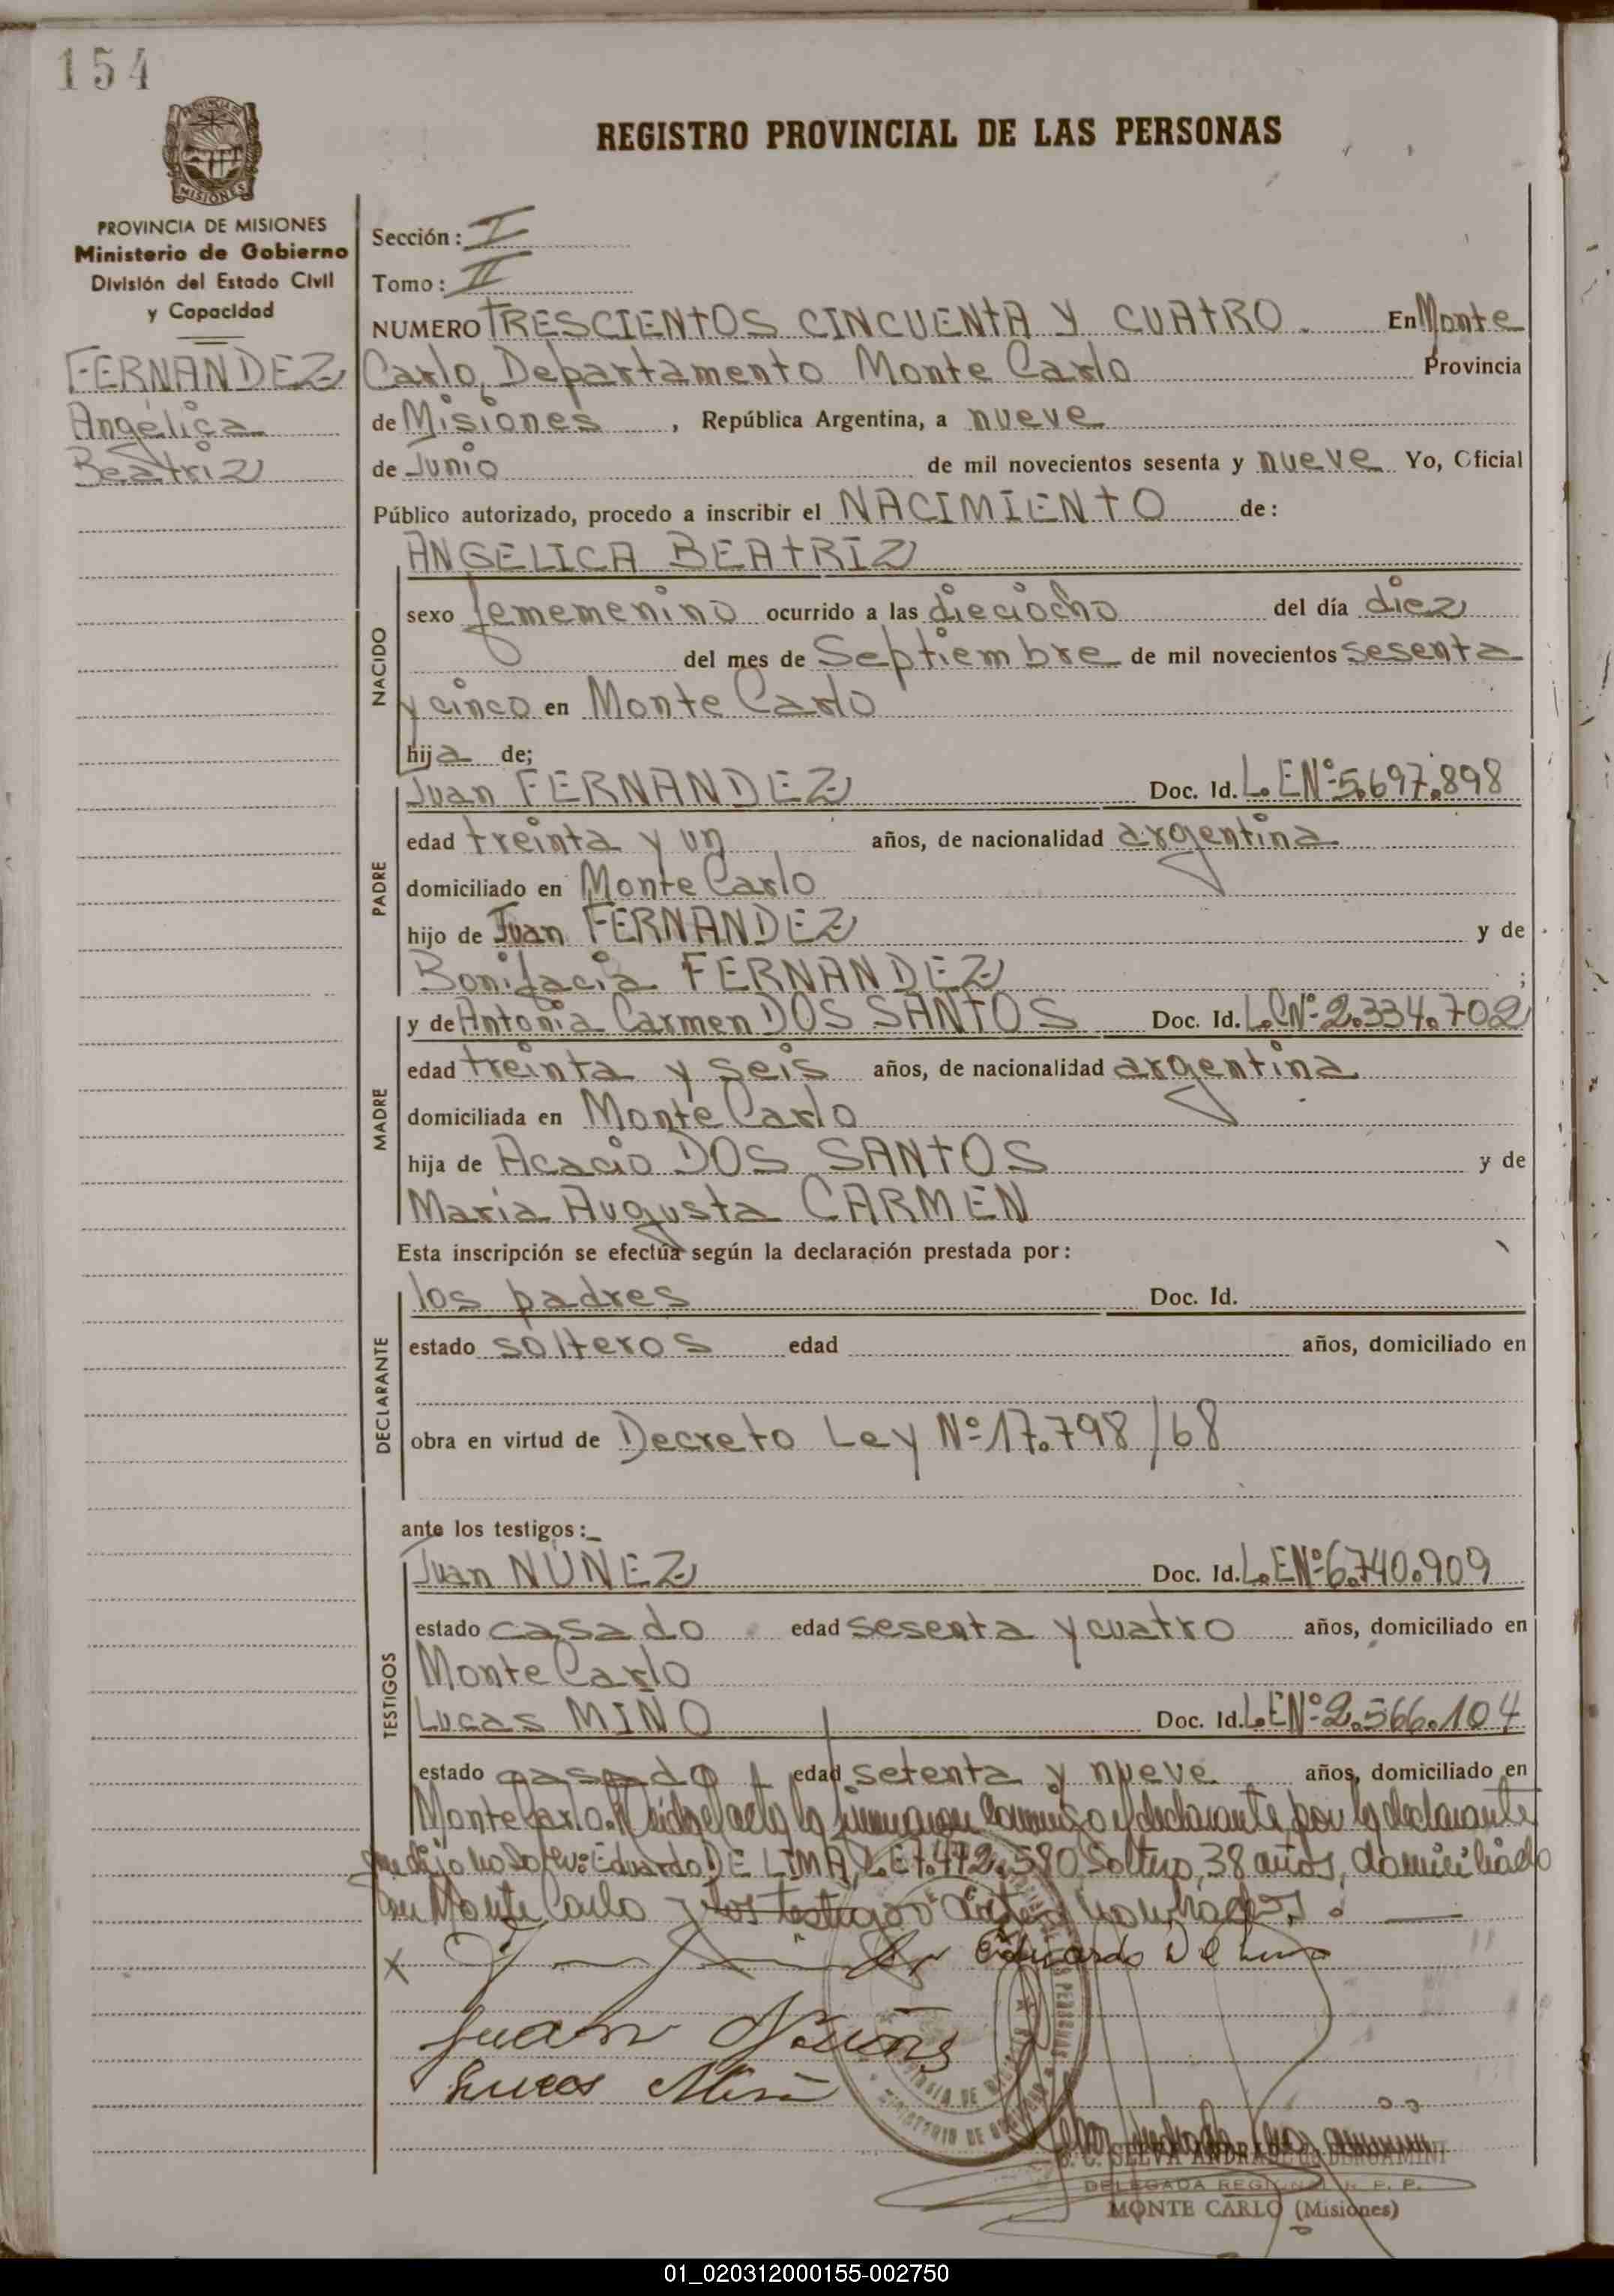 154
REGISTRO PROVINCIAL DE LAS PERSONAS
PROVINCIA DE MISIONES
Ministerio de Gobierno
División del Estado Civil
y Capacidad
FERNANDEZ
Angélica
Beatriz
Sección: I
Tomo: II
NUMERO TRESCIENTOS CINCUENTA Y CUATRO. En Monte
Carlo, Departamento Monte Carlo Provincia
de Misiones, República Argentina, a nueve
de Junio de mil novecientos sesenta y nueve Yo, Oficial
Público autorizado, procedo a inscribir el NACIMIENTO de:
NACIDO
ANGELICA BEATRIZ
sexo fememenino ocurrido a las dieciocho del día diez
del mes de Septiembre de mil novecientos sesenta
y cinco en Monte Carlo
hija de;
PADRE
Juan FERNANDEZ Doc. Id. L.E Nº 5.697.898
edad treinta y un años, de nacionalidad argentina
domiciliado en Monte Carlo
hijo de Juan FERNANDEZ y de
Bonifacia FERNANDEZ ;
MADRE
y de Antonia Carmen DOS SANTOS Doc. Id. L.C Nº 2.334.702
edad treinta y seis años, de nacionalidad argentina
domiciliada en Monte Carlo
hija de Acacio DOS SANTOS y de
Maria Augusta CARMEN
Esta inscripción se efectúa según la declaración prestada por:
DECLARANTE
los padres Doc. Id.
estado solteros edad años, domiciliado en
obra en virtud de Decreto Ley Nº 17.798/68
ante los testigos:
TESTIGOS
Juan NUÑEZ Doc. Id. L.E Nº 6.740.909
estado casado edad sesenta y cuatro años, domiciliado en
Monte Carlo
Lucas MIÑO Doc. Id. L.E Nº 2.566.104
estado casado edad setenta y nueve años, domiciliado en
Monte Carlo. Leída el acta la firman con conmigo el declarante, por la declarante
que dijo no saber: Eduardo DE LIMA, L.E 7.472.580, Soltero, 38 años, domiciliado
en Monte Carlo y los testigos antes nombrados.
x Eduardo De Lima
Juan Nuñes
Lucas Miño
S. C. SELVA ANDRADE de BERGAMINI
DELEGADA REGIONAL R. P. P.
MONTE CARLO (Misiones)
01_020312000155-002750